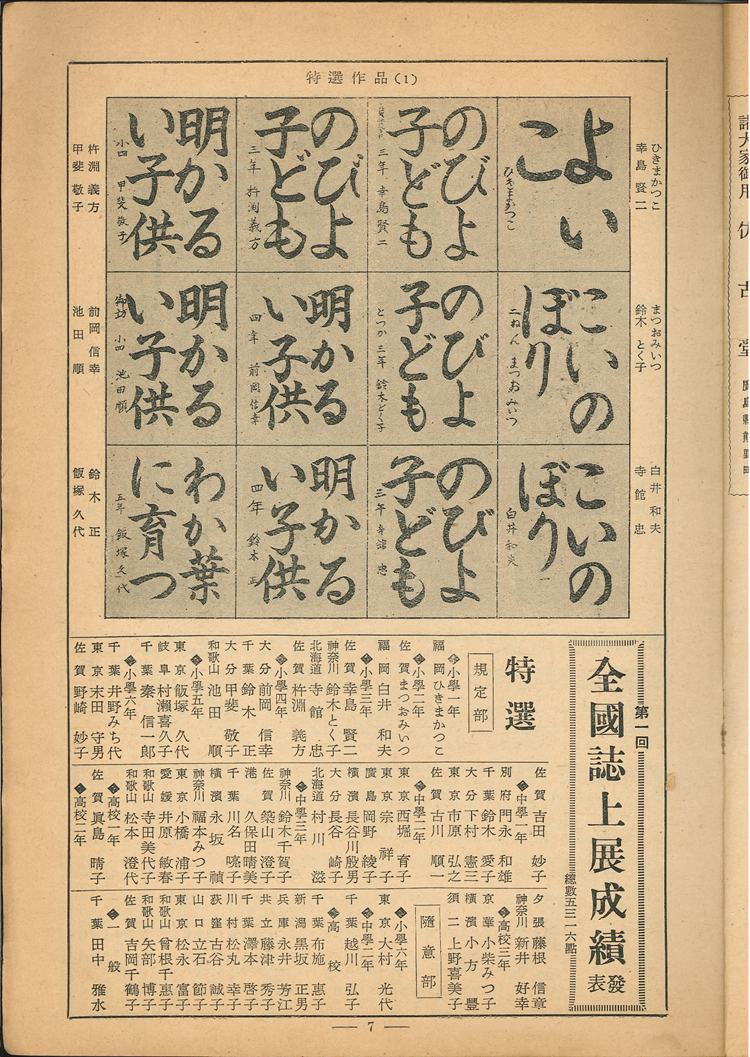 特選作品(1)
ひきまかつこ
幸島 賢二
まつおみいつ
鈴木 とく子
白井 和夫
寺館 忠
よい
こ
ひきまかつこ
のびよ
子ども
三年 幸島賢二
のびよ
子ども
三年 杵渕義方
明かる
い子供
小四 甲斐敬子
こいの
ぼり
二ねん まつおみいつ
のびよ
子ども
とつか三年 鈴木とく子
明かる
い子供
四年 前岡信幸
明かる
い子供
小四 池田順
こいの
ぼり
白井和夫
のびよ
子ども
三年 寺館 忠
明かる
い子供
四年 鈴木 正
わか葉
に育つ
五年 飯塚久代
杵淵 義方
甲斐 敬子
前岡 信幸
池田 順
鈴木 正
飯塚 久代
第一回
全國誌上展成績
發表
總數五三一六點
特選
規定部
小學一年
福岡 ひきまかつこ
小學二年
佐賀 まつおみいつ
福岡 白井 和夫
小學三年
佐賀 幸島 賢二
神奈川 鈴木とく子
北海道 寺館 忠
佐賀 杵淵 義方
小學四年
大分 前岡 信幸
千葉 鈴木 正
大分 甲斐 敬子
和歌山 池田 順
小學五年
東京 飯塚 久代
岐阜 村瀬喜久子
千葉 秦 信一郎
小學六年
千葉 井野みち代
東京 末田 守男
佐賀 野崎 妙子
佐賀 吉田 妙子
中學一年
別府 門永 和雄
千葉 鈴木 愛子
大分 下村 憲三
東京 市原 弘之
佐賀 古川 順一
中學二年
東京 西堀 育子
東京 宗 祥子
廣島 岡野 綾子
橫濱 長谷川殷男
大分 長谷 崎子
北海道 村川 滋
中學三年
神奈川 鈴木千賀子
佐賀 築山 澄子
港 久保田晴美
千葉 川名 喨子
橫濱 永坂 禎
神奈川 福本みつ子
東京 小橋 浦子
愛媛 井原 敏春
和歌山 寺田美代子
和歌山 松本 澄代
高校一年
佐賀 眞島 晴子
高校二年
夕張 藤根 信章
神奈川 新井 好幸
高校三年
京華 小柴みつ子
橫濱 小方 豐
須二 上野喜美子
隨意部
小學六年
東京 大村 光代
中學二年
千葉 越川 弘子
高校
千葉 布施 惠子
新潟 黑坂 正男
兵庫 永井 芳江
共立 藤津 秀子
千葉 澤本 啓子
川村 松丸 幸子
荻窪 古谷 誠子
山口 立石 節子
東京 松永 富子
和歌山 曾根千惠子
和歌山 矢部 博子
佐賀 吉岡千鶴子
一般
千葉 田中 雅水
— 7 —
諸大家御用